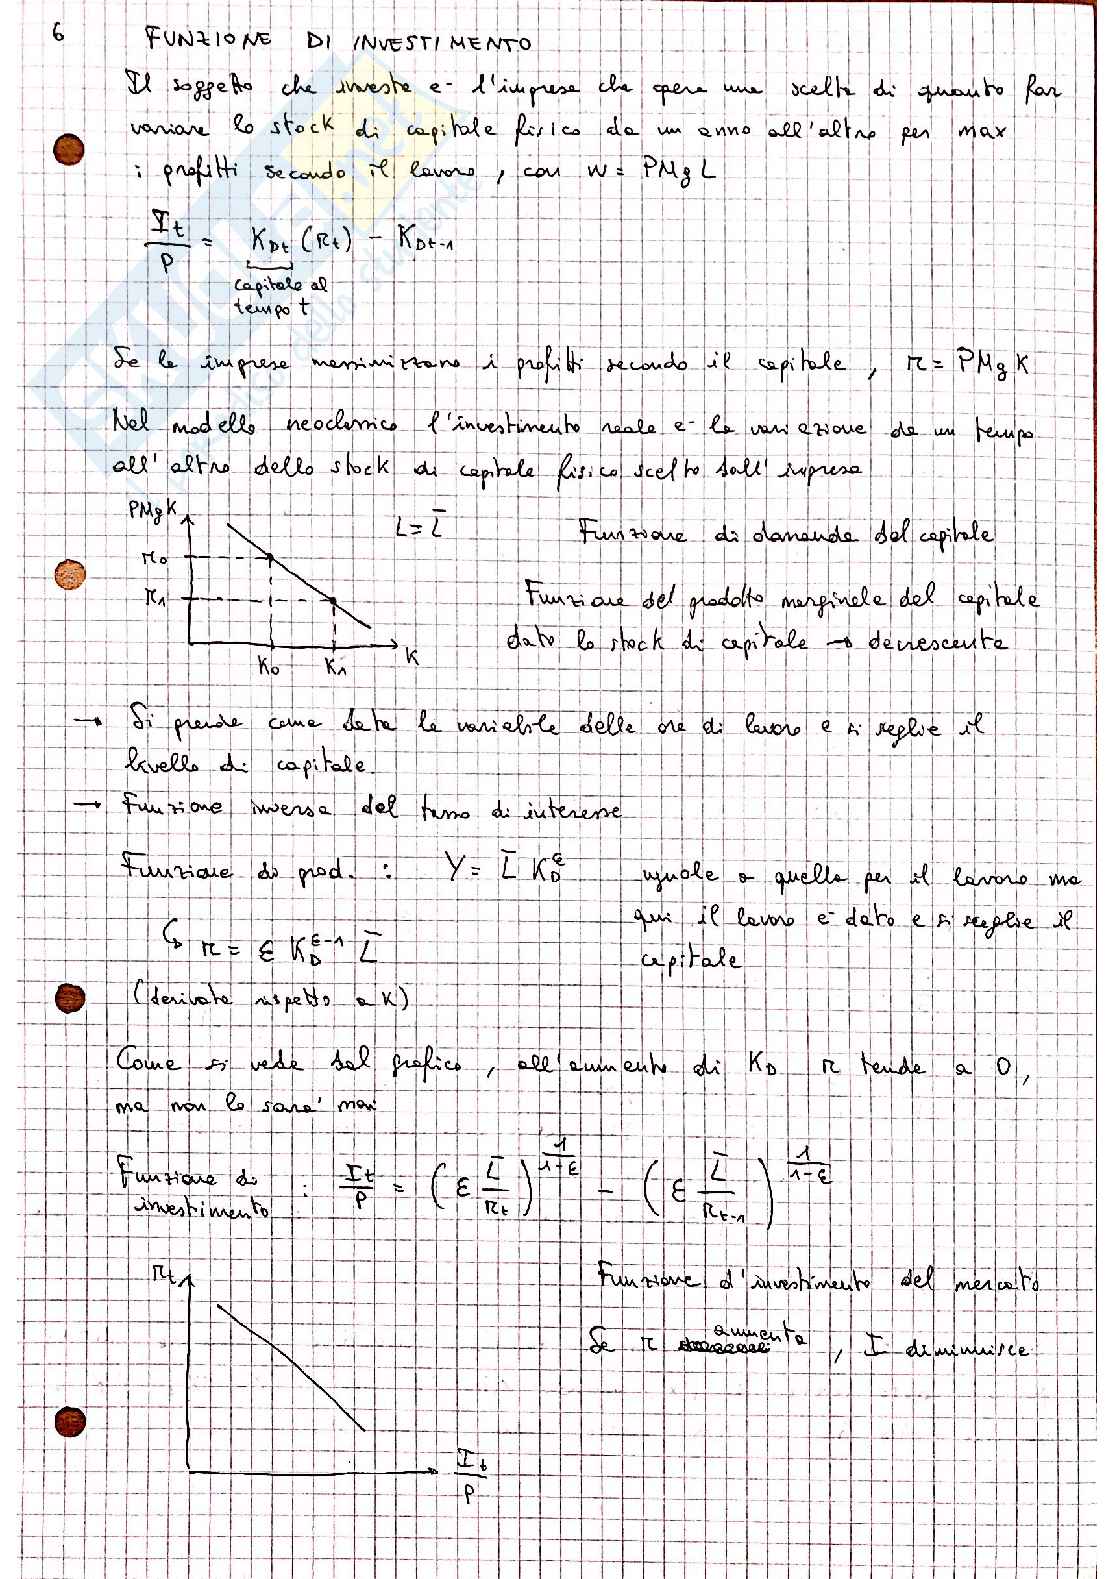 6 FUNZIONE DI INVESTIMENTO
Il soggetto che investe e' l'impresa che opera una scelta di quanto far
variare lo stock di capitale fisico da un anno all'altro per max
i profitti secondo il lavoro, con w = PMgL
I_t/P = K_Dt (r_t) - K_Dt-1
capitale al
tempo t
Se le imprese massimizzano i profitti secondo il capitale, r = PMgK
Nel modello neoclassico l'investimento reale e' la variazione da un tempo
all'altro dello stock di capitale fisico scelto dall'impresa
PMgK
L = L̄ Funzione di domanda del capitale
r0
r1 Funzione del prodotto marginale del capitale
dato lo stock di capitale → decrescente
K0 K1 K
→ Si prende come data la variabile delle ore di lavoro e si sceglie il
livello di capitale.
→ Funzione inversa del tasso di interesse
Funzione di prod. : Y = L̄ K_D^ε uguale a quella per il lavoro ma
qui il lavoro e' dato e si sceglie il
capitale
↳ r = ε K_D^(ε-1) L̄
(derivata rispetto a K)
Come si vede dal grafico, all'aumento di K_D r tende a 0,
ma non lo sara' mai
Funzione di
investimento : I_t/P = (ε L̄/r_t)^(1/(1-ε)) - (ε L̄/r_t-1)^(1/(1-ε))
r_t Funzione d'investimento del mercato
Se r aumenta, I diminuisce
I_t/P
SKUOLA.net